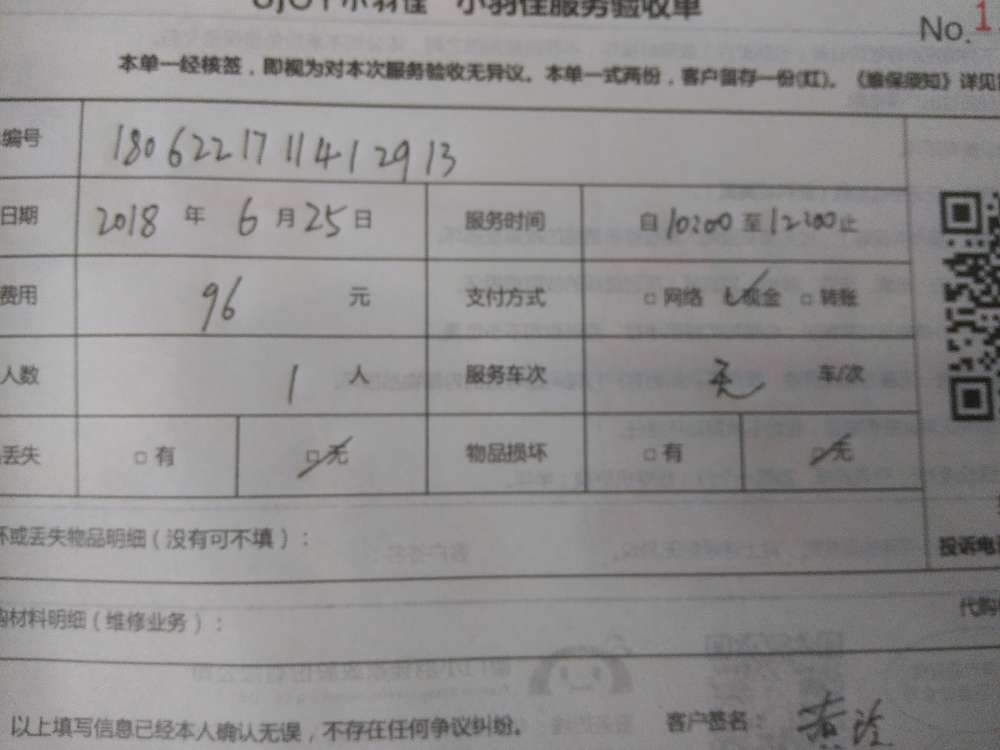 小羽佳服务验收单
No. 1
本单一经核签，即视为对本次服务验收无异议。本单一式两份，客户留存一份(红)。《维保须知》详见
编号 18062217114129 13
日期 2018 年 6 月 25 日 服务时间 自 10:00 至 12:00 止
费用 96 元 支付方式 □ 网络 ✓ 现金 □ 转账
人数 1 人 服务车次 无 车/次
丢失 □ 有 □ 无 物品损坏 □ 有 □ 无
坏或丢失物品明细（没有可不填）：
投诉电
购材料明细（维修业务）：
代购
以上填写信息已经本人确认无误，不存在任何争议纠纷。 客户签名：